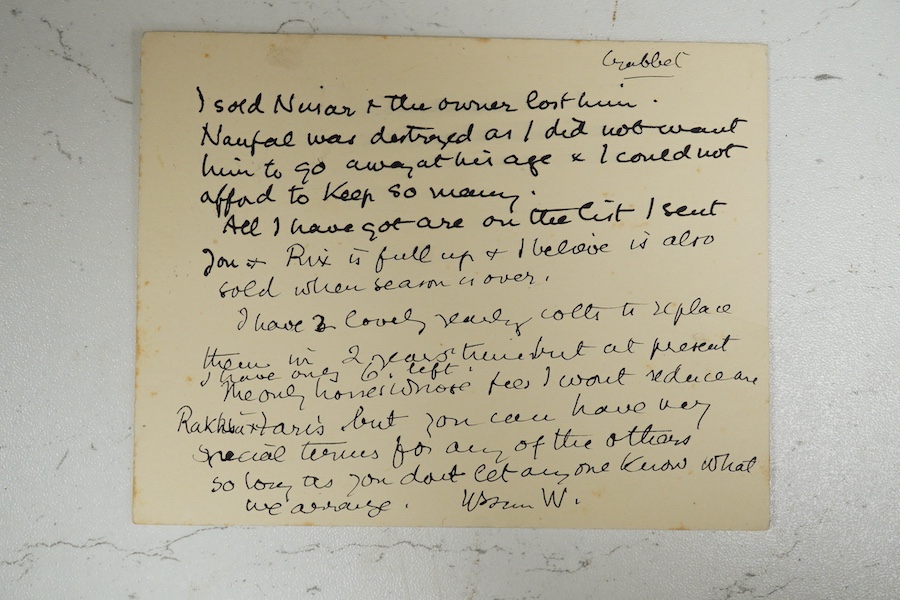 Crabbet
I sold Nisar & the owner lost him.
Naufal was destroyed as I did not want
him to go away at his age & I could not
afford to keep so many.
All I have got are on the list I sent
you & Rix is full up & I believe is also
sold when season is over.
I have 2 lovely yearling colts to replace
them in 2 years time but at present
I have only 6 left.
The only horses whose fees I wont reduce are
Rakhis & Faris but you can have very
special terms for any of the others
so long as you dont let anyone know what
we arrange. W.